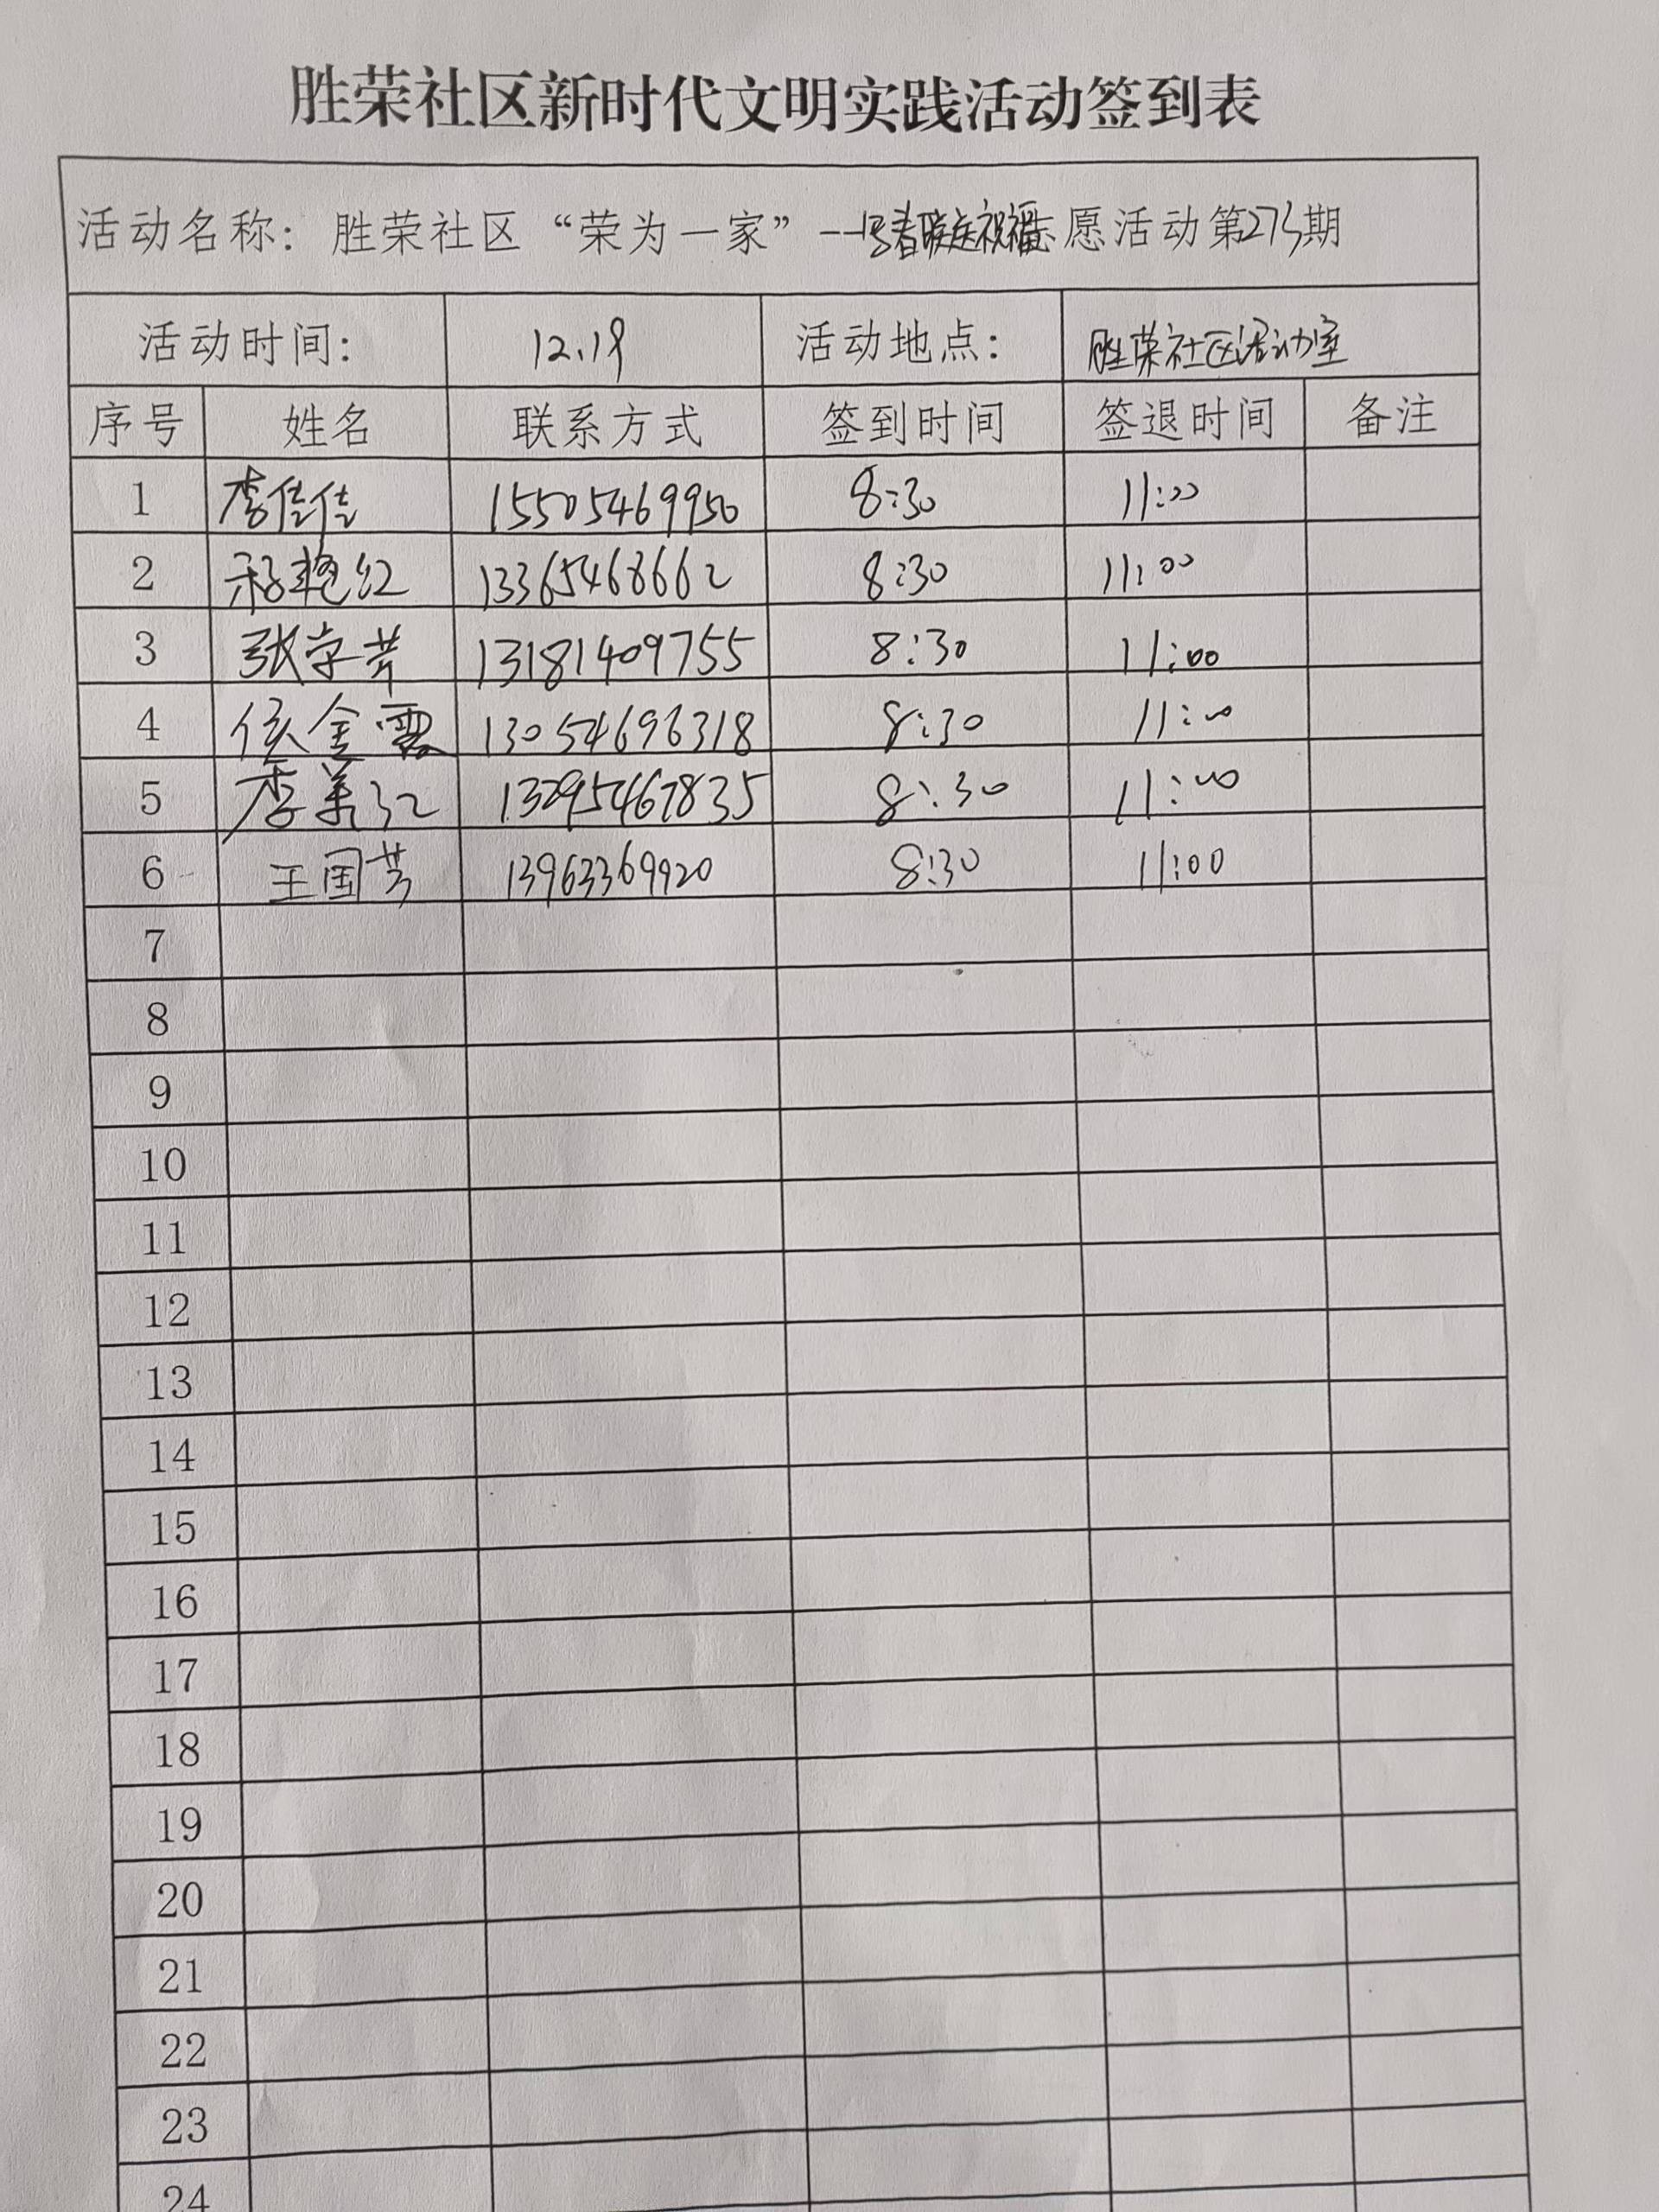 胜荣社区新时代文明实践活动签到表
活动名称：胜荣社区“荣为一家”--写春联送祝福志愿活动第273期
活动时间： 12.19 活动地点： 胜荣社区活动室
序号 姓名 联系方式 签到时间 签退时间 备注
1 李佳佳 15505469950 8:30 11:00
2 艳红 13365468662 8:30 11:00
3 张学芳 13181409755 8:30 11:00
4 金霞 13054696318 8:30 11:00
5 李美江 13295467835 8:30 11:00
6 王国芳 13963369920 8:30 11:00
7
8
9
10
11
12
13
14
15
16
17
18
19
20
21
22
23
24